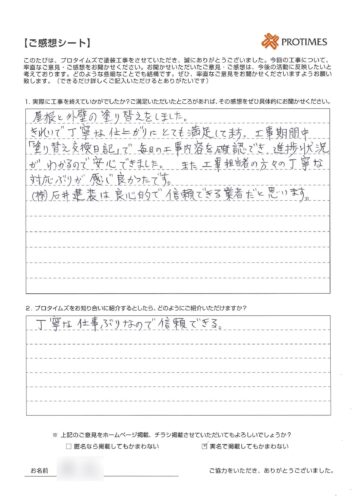 【ご感想シート】
PROTIMES
このたびは、プロタイムズで塗装工事をさせていただき、誠にありがとうございました。今回の工事について、
率直なご意見・ご感想をお聞かせください。お聞かせいただいたご意見・ご感想は、今後の活動に反映したいと
考えております。どのような些細なことでも結構です。ぜひ、率直なご意見をお聞かせくださいますようお願い
致します。（できるだけ詳しくご記入いただけるとありがたいです）
1. 実際に工事を終えていかがでしたか？ご満足いただいたところがあれば、その感想をぜひ具体的にお聞かせください。
屋根と外壁の塗り替えをしました。
きれいで丁寧な仕上がりにとても満足してます。工事期間中
「塗り替え交換日記」で毎日の工事内容を確認でき、進捗状況
がわかるので安心できました。また工事担当者の方々の丁寧な
対応ぶりが感じ良かったです。
(株)石井建装は良心的で信頼できる業者だと思います。
2. プロタイムズをお知り合いに紹介するとしたら、どのようにご紹介いただけますか？
丁寧な仕事ぶりなので信頼できる。
※ 上記のご意見をホームページ掲載、チラシ掲載させていただいてもよろしいでしょうか？
□ 匿名なら掲載してもかまわない ☑ 実名で掲載してもかまわない
お名前
ご協力をいただき、ありがとうございました。